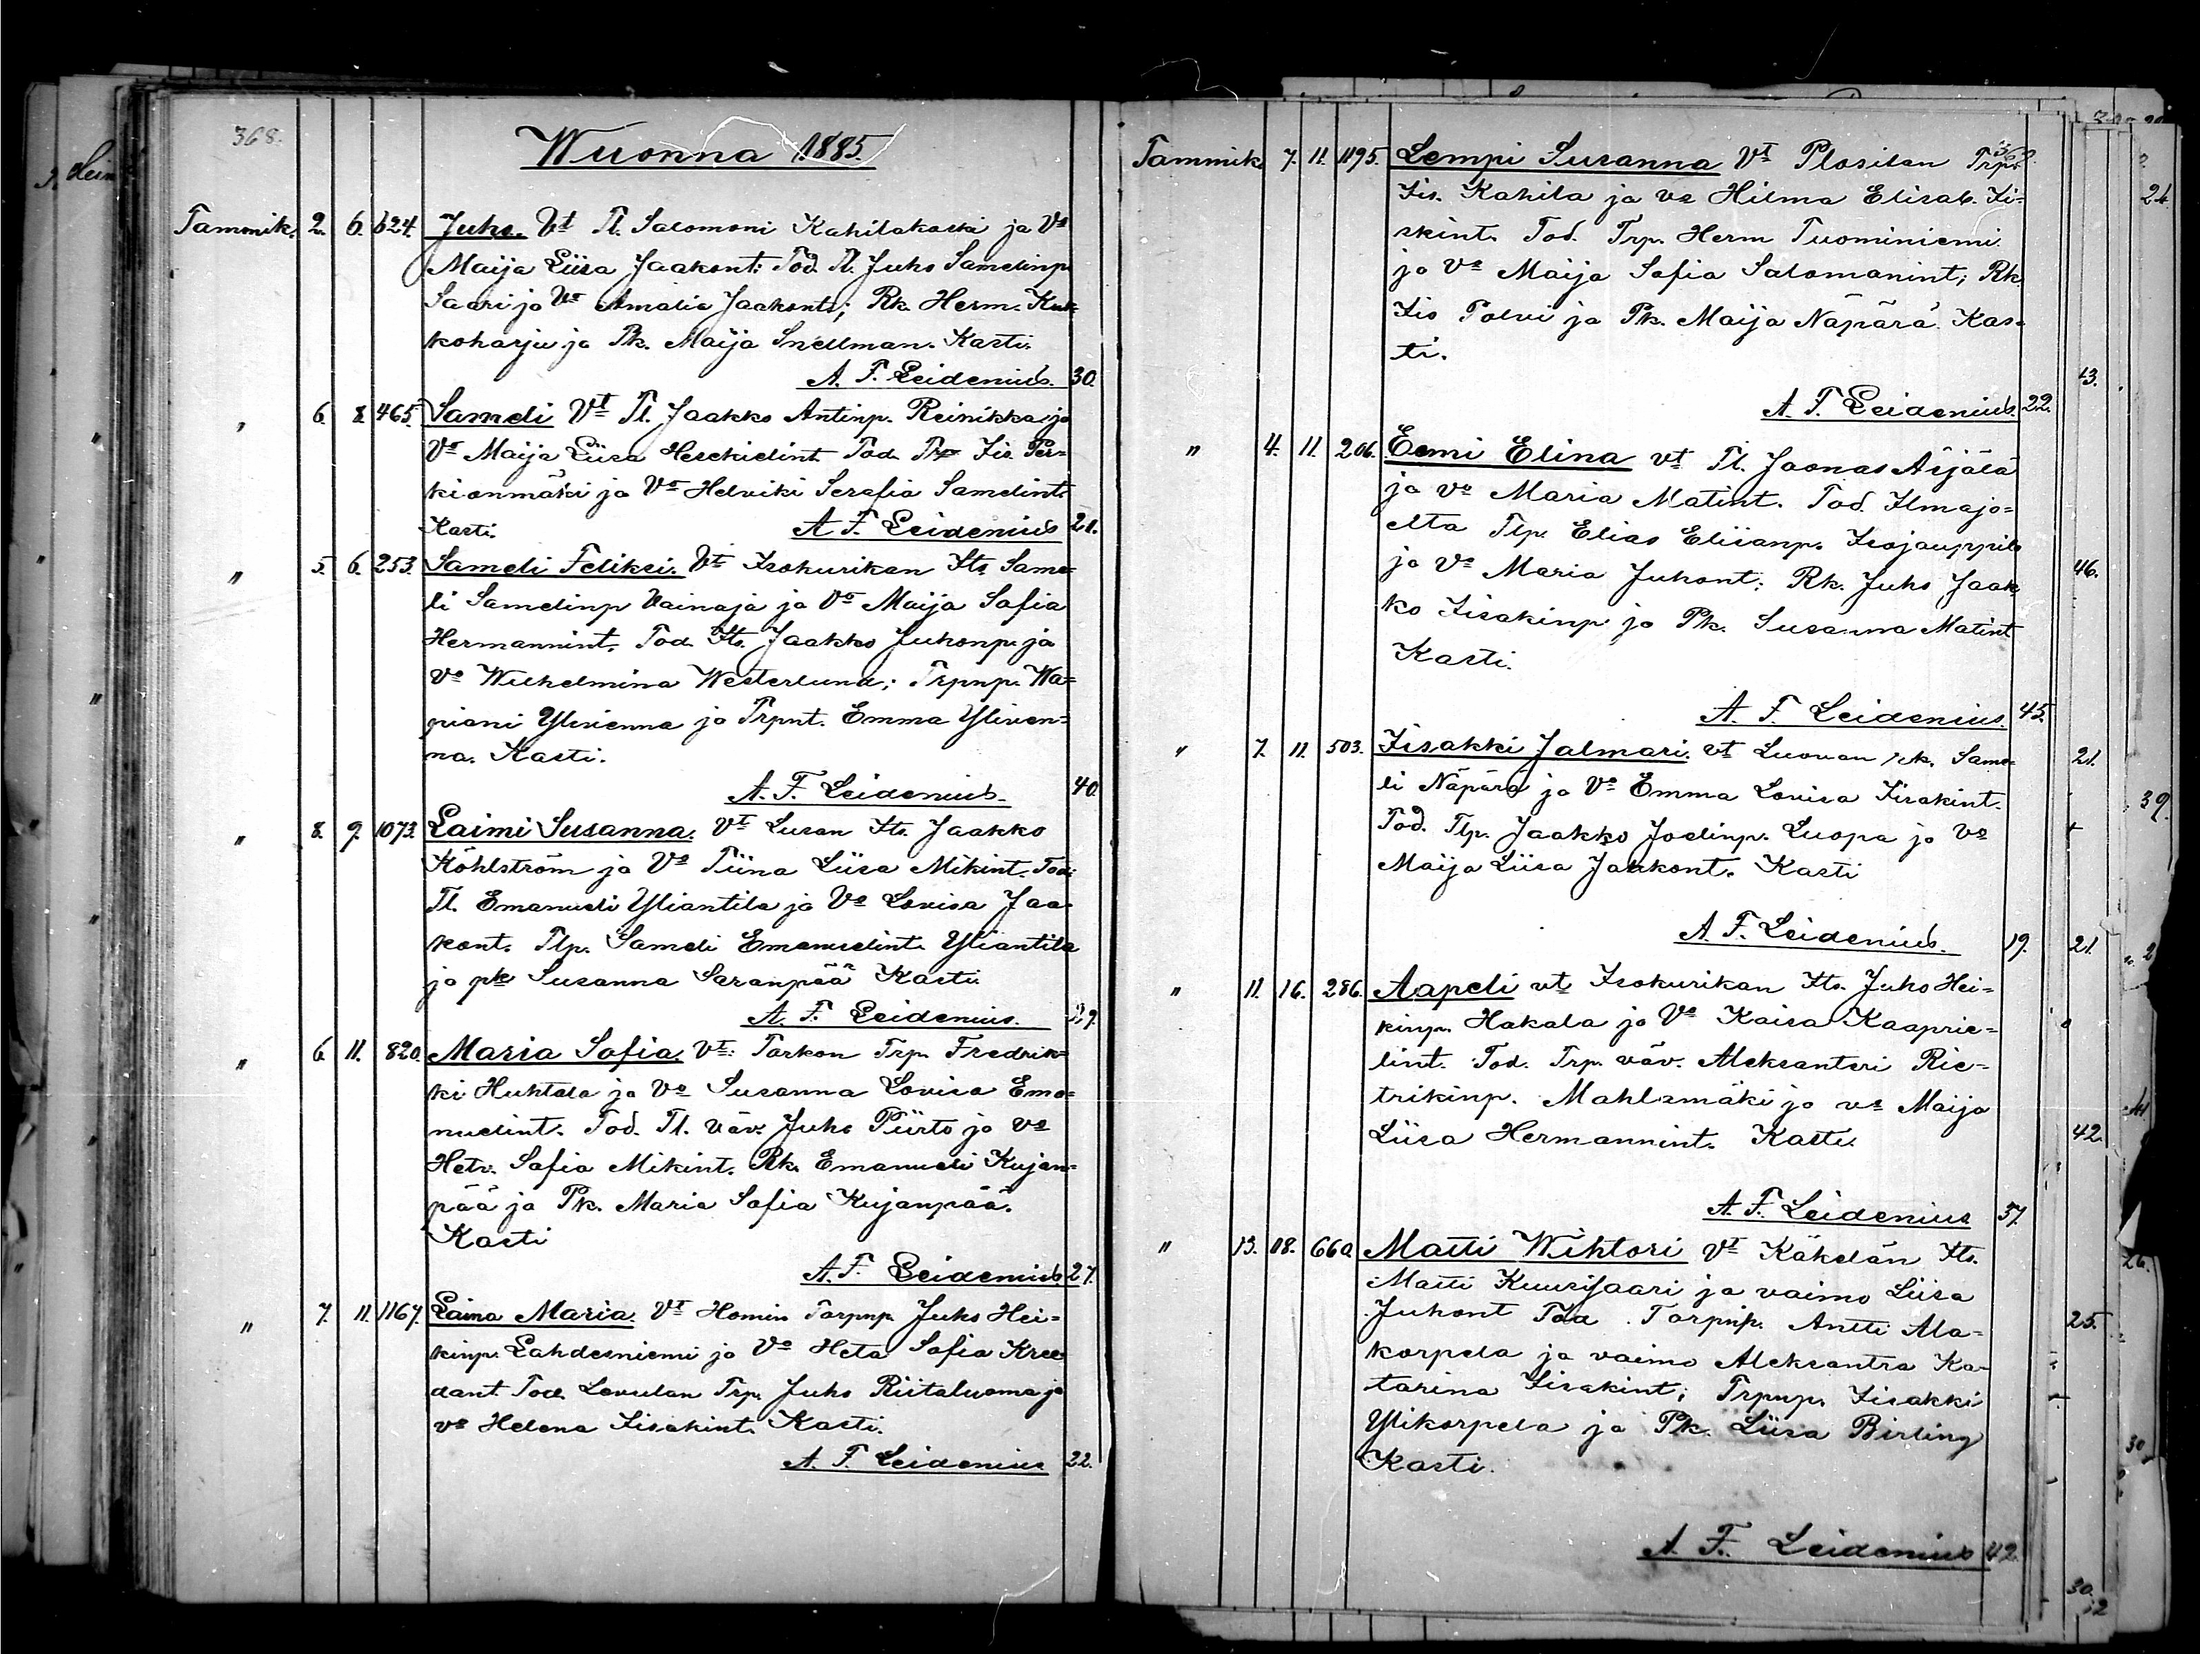 368.
Wuonna 1885.
Tammik. 2. 6. 624. Juho. Vt Tl. Salomoni Kahilakoski ja Vo
Maija Liisa Jaakont: Tod. Tl. Juho Samelinp.
Saari ja Vo Amalia Jaakont; Rk. Herm. Kuk-
koharju ja Pk. Maija Snellman. Kasti.
A. F. Leidenius. 30.
" 6. 8. 465. Sameli Vt Tl. Jaakko Antinp. Reinikka ja
Vo Maija Liisa Hesekielint. Tod. Trp. Iis. Per-
kionmäki ja Vo Helviki Serafia Samelint.
Kasti. A. F. Leidenius 21.
" 5. 6. 253. Sameli Feliksi. Vt Isokurikan Its. Same-
li Samelinp Vainaja ja Vo Maija Sofia
Hermannint. Tod. Its. Jaakko Juhonp. ja
Vo Wilhelmina Westerlund; Trpnp. Wa-
piani Ylivenna ja Trpnt. Emma Yliven-
na. Kasti.
A. F. Leidenius. 40.
" 8. 9. 1073. Laimi Susanna. Vt Lusan Its. Jaakko
Köhlström ja Vo Tiina Liisa Mikint. Tod:
Tl. Emanueli Yliantila ja Vo Lovisa Jaa-
kont. Tlp. Sameli Emanuelint. Yliantila
ja pk Susanna Saranpää Kasti.
A. F. Leidenius. 29.
" 6. 11. 820. Maria Sofia. Vt: Tarkon Trp. Fredrik-
ki Huhtala ja Vo Susanna Lovisa Ema-
nuelint. Tod. Tl. väv. Juho Piirto ja vo
Hetv. Sofia Mikint. Rk. Emanueli Kujan-
pää ja Pk. Maria Sofia Kujanpää.
Kasti
A. F. Leidenius 27.
" 7. 11. 1167. Laina Maria. Vt Homin Torpnp. Juho Hei-
kinp. Lahdesniemi ja Vo Heta Sofia Kree-
dant. Tod. Lovulan Trp. Juho Riitaluoma ja
vo Helena Iisakint. Kasti.
A. F. Leidenius 22.
Tammik. 7. 11. 1195. Lempi Susanna Vt Plosilan Trp.
Iis. Kahila ja vo Hilma Elisab. Ii-
skint. Tod. Trp. Herm Tuominiemi
ja Vo Maija Sofia Salomanint; Rk.
Iis Polvi ja Pk. Maija Näpärä. Kas-
ti.
A. F. Leidenius. 22.
" 4. 11. 206. Eemi Elina vt Tl. Joonas Äijälä
ja vo Maria Matint. Tod. Ilmajo-
elta Tlp. Elias Eliianp. Isojauppila
ja Vo Maria Juhont; Rk. Juho Jaak
ko Iisakinp ja Pk. Susanna Matint
Kasti.
A. F. Leidenius. 45.
" 7. 11. 503. Iisakki Jalmari. vt Luovan rk. Same-
li Näpärä ja Vo Emma Lovisa Iisakint.
Tod. Tlp. Jaakko Joelinp. Luopa ja Vo
Maija Liisa Jaakont. Kasti
A. F. Leidenius. 19.
" 11. 16. 286. Aapeli vt Isokurikan Its. Juho Hei-
kinp. Hakala ja Vo Kaisa Kaaprie-
lint. Tod. Trp. väv. Aleksanteri Rie-
trikinp. Mahlamäki ja vo Maija
Liisa Hermannint. Kasti.
A. F. Leidenius 37.
" 13. 18. 660. Matti Wihtori Vt Käkelän Its.
Matti Kuurisaari ja vaimo Liisa
Juhont Tod. Torpnp. Antti Ala-
korpela ja vaimo Aleksantra Ka-
tarina Iisakint; Trpnp. Iisakki
Ylikorpela ja Pk. Liisa Birling
Kasti.
A. F. Leidenius 42.